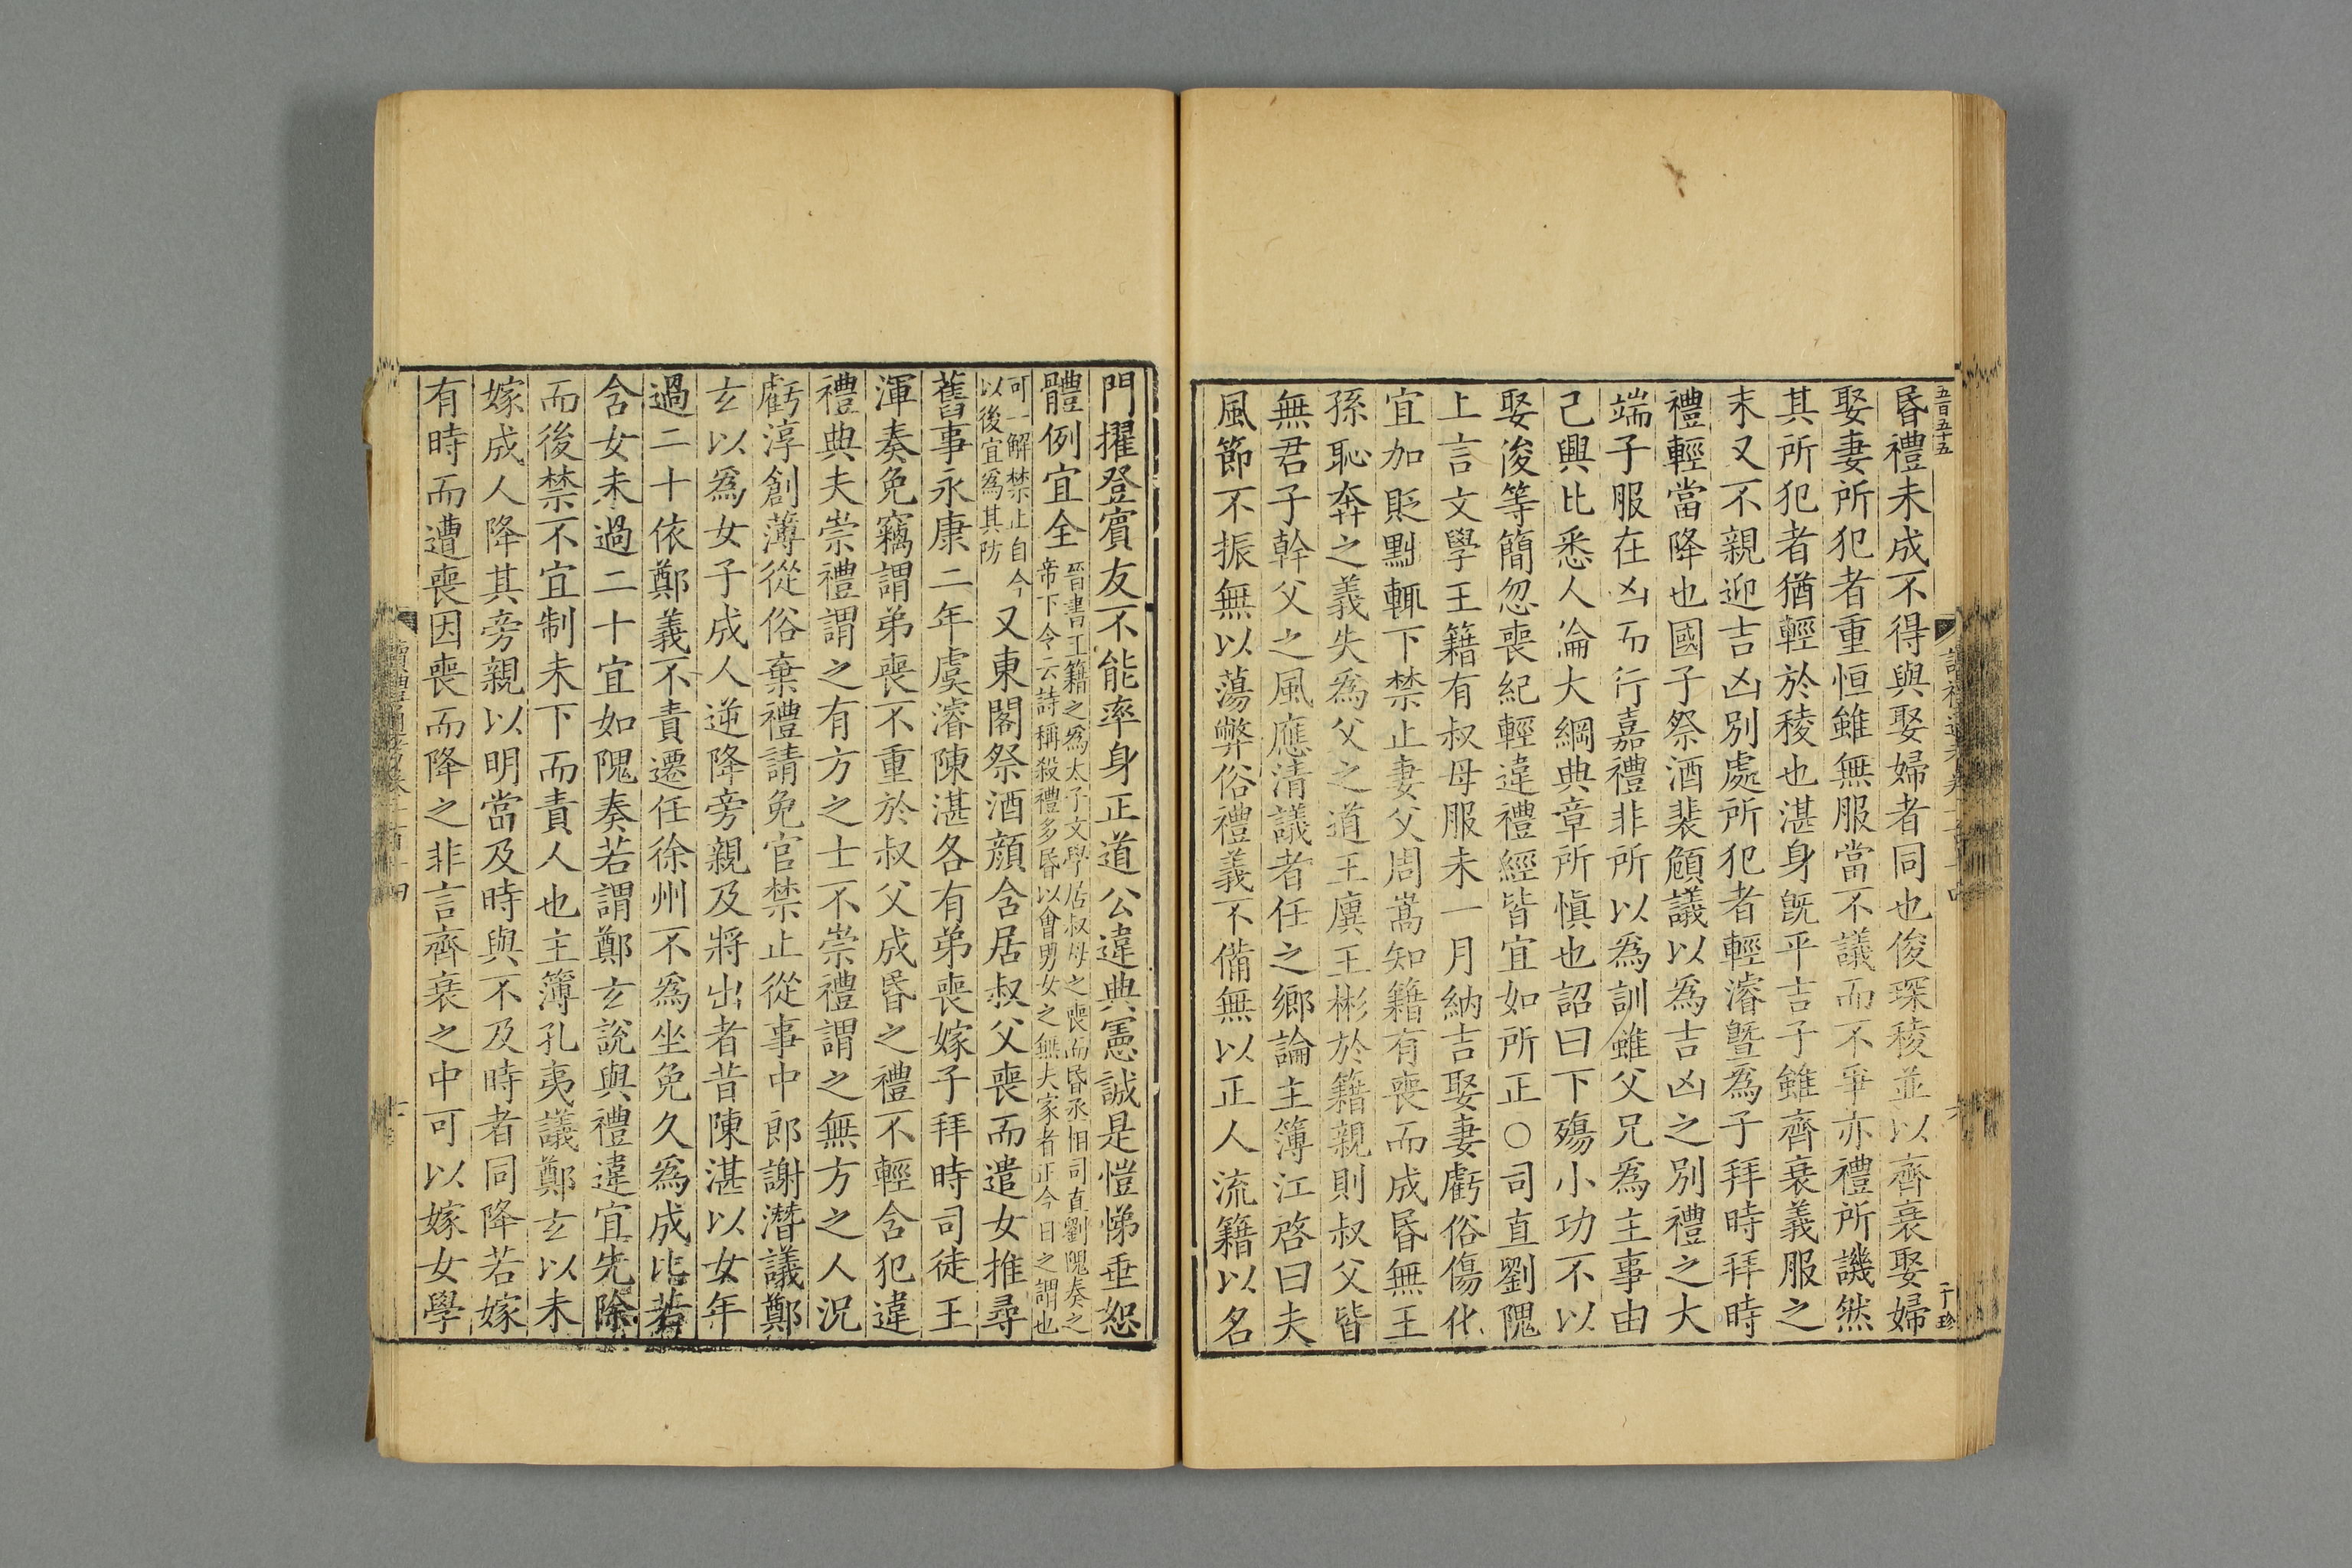 五百五十五
昏禮未成不得與娶婦者同也俊琛稜並以齊衰娶婦
娶妻所犯者重恒雖無服當不議而不爭亦禮所譏然
其所犯者猶輕於稜也湛身旣平吉子雖齊衰義服之
末又不親迎吉凶別處所犯者輕濬曁爲子拜時拜時
禮輕當降也國子祭酒裴頠議以爲吉凶之別禮之大
端子服在凶而行嘉禮非所以爲訓雖父兄爲主事由
己興比悉人倫大綱典章所愼也詔曰下殤小功不以
娶浚等簡忽喪紀輕違禮經皆宜如所正○司直劉隗
上言文學王籍有叔母服未一月納吉娶妻虧俗傷化
宜加貶黜輒下禁止妻父周嵩知籍有喪而成昏無王
孫恥奔之義失爲父之道王廙王彬於籍親則叔父皆
無君子幹父之風應清議者任之鄉論主簿江啓曰夫
風節不振無以蕩弊俗禮義不備無以正人流籍以名
門擢登賓友不能率身正道公違典憲誠是愷悌垂恕
體例宜全
晉書王籍之爲太子文學居叔母之喪而昏丞相司直劉隗奏之
帝下令云詩稱殺禮多昏以會男女之無夫家者正今日之謂也
可一解禁止自今
以後宜爲其防
又東閣祭酒顏含居叔父喪而遣女推尋
舊事永康二年虞濬陳湛各有弟喪嫁子拜時司徒王
渾奏免竊謂弟喪不重於叔父成昏之禮不輕含犯違
禮典夫崇禮謂之有方之士不崇禮謂之無方之人況
虧淳創薄從俗棄禮請免官禁止從事中郎謝潛議鄭
玄以爲女子成人逆降旁親及將出者昔陳湛以女年
過二十依鄭義不責遷任徐州不爲坐免久爲成比若
含女未過二十宜如隗奏若謂鄭玄說與禮違宜先除
而後禁不宜制未下而責人也主簿孔夷議鄭玄以未
嫁成人降其旁親以明當及時與不及時者同降若嫁
有時而遭喪因喪而降之非言齊衰之中可以嫁女學